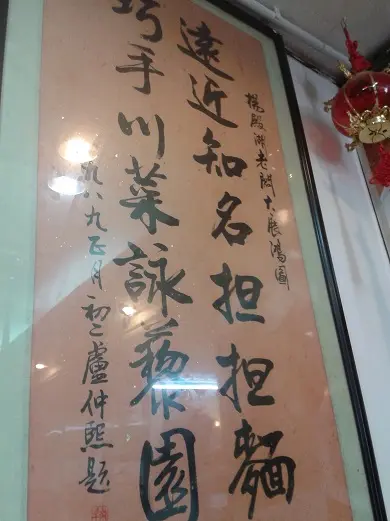 楊殿湘老闆大展鴻圖
遠近知名担担麵
巧手川菜詠藜園
一九八九正月初二盧仲熙題